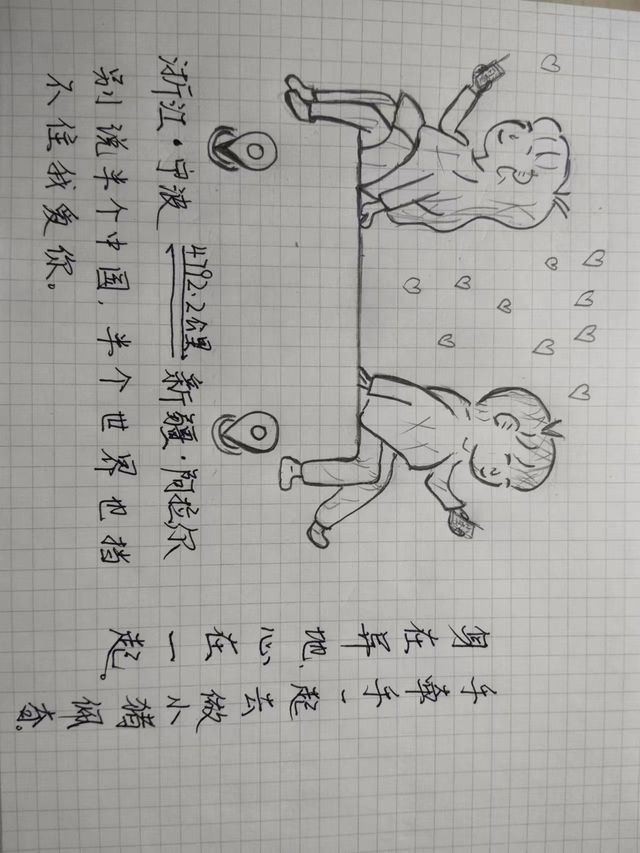 浙江·宁波 4792.2公里 新疆·阿拉尔
别说半个中国，半个世界也挡
不住我爱你。
身在异地、心在一起。
手牵手一起去做小猪佩奇。